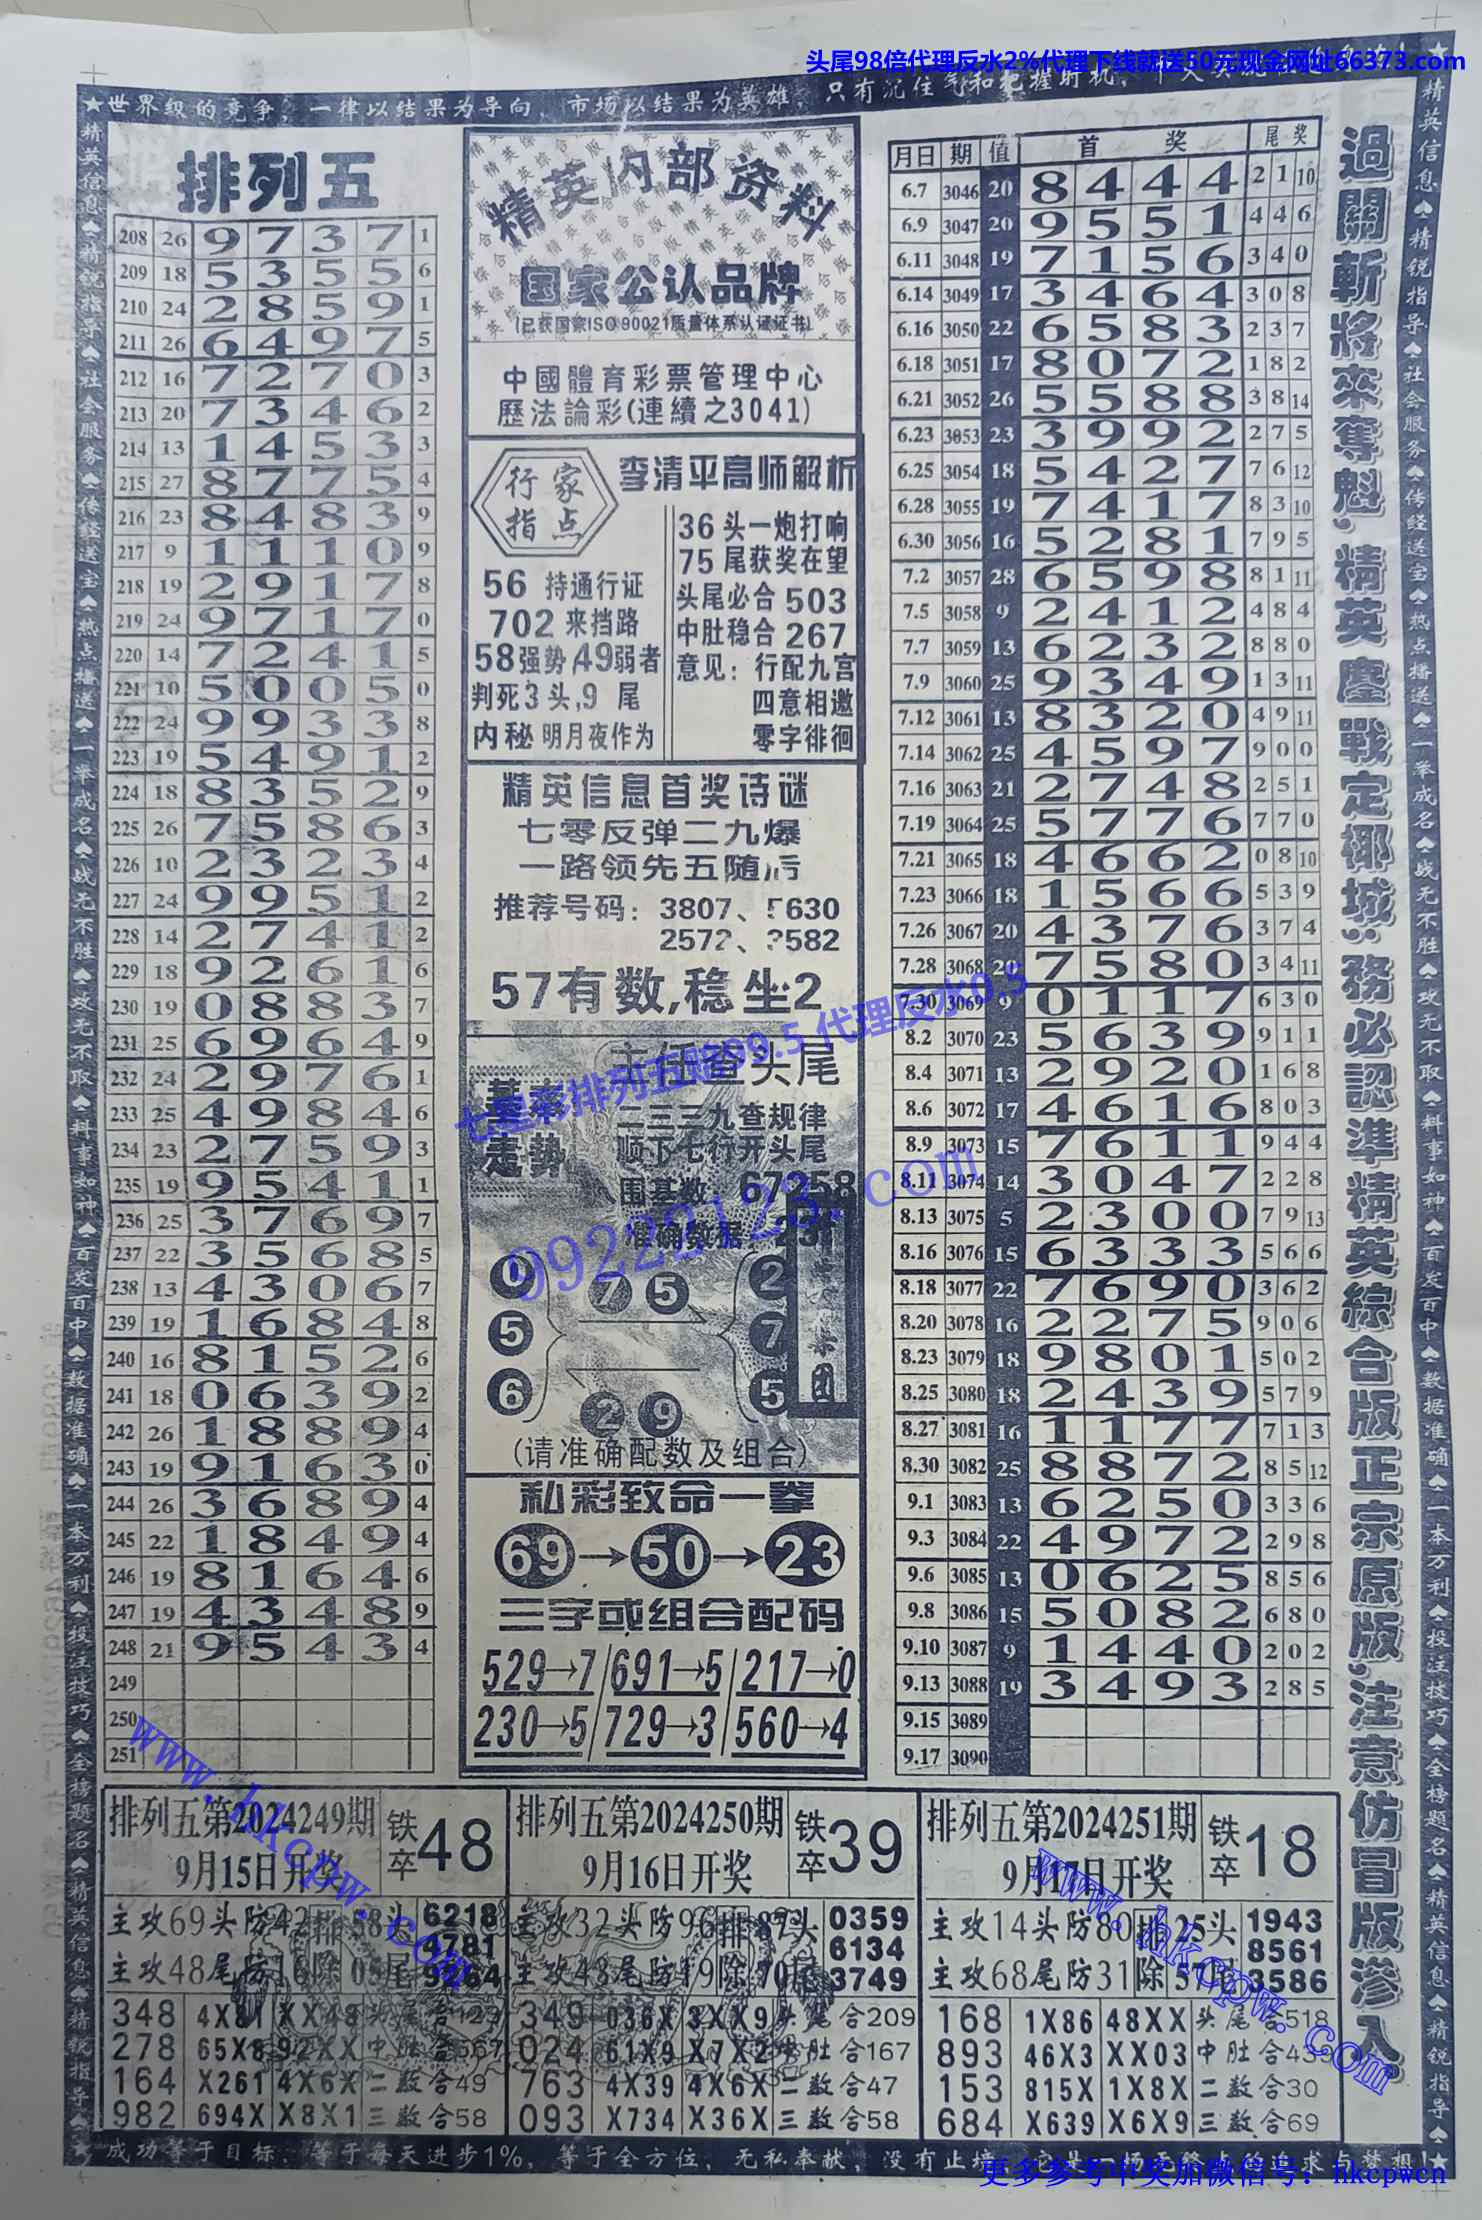 头尾98倍代理反水2%代理下线就送50元现金网址66373.com
★世界级的竞争，一律以结果为导向，市场以结果为英雄，只有沉住气和把握时机，
排列五
208 26 9 7 3 7 1
209 18 5 3 5 5 6
210 24 2 8 5 9 1
211 26 6 4 9 7 5
212 16 7 2 7 0 3
213 20 7 3 4 6 2
214 13 1 4 5 3 3
215 27 8 7 7 5 4
216 23 8 4 8 3 9
217 9 1 1 1 0 9
218 19 2 9 1 7 8
219 24 9 7 1 7 0
220 14 7 2 4 1 5
221 10 5 0 0 5 0
222 24 9 9 3 3 8
223 19 5 4 9 1 2
224 18 8 3 5 2 9
225 26 7 5 8 6 3
226 10 2 3 2 3 4
227 24 9 9 5 1 2
228 14 2 7 4 1 2
229 18 9 2 6 1 6
230 19 0 8 8 3 7
231 25 6 9 6 4 9
232 24 2 9 7 6 1
233 25 4 9 8 4 6
234 23 2 7 5 9 3
235 19 9 5 4 1 1
236 25 3 7 6 9 7
237 22 3 5 6 8 5
238 13 4 3 0 6 7
239 19 1 6 8 4 8
240 16 8 1 5 2 6
241 18 0 6 3 9 2
242 26 1 8 8 9 4
243 19 9 1 6 3 0
244 26 3 6 8 9 4
245 22 1 8 4 9 4
246 19 8 1 6 4 6
247 19 4 3 4 8 9
248 21 9 5 4 3 4
249
250
251
精英内部资料
国家公认品牌
(已获国际ISO90021质量体系认证证书)
中國體育彩票管理中心
歷法論彩(連續之3041)
行家
指点
李清平高师解析
56 持通行证
702 来挡路
58强势,49弱者
判死3头,9 尾
内秘 明月夜作为
36 头一炮打响
75 尾获奖在望
头尾必合 503
中肚稳合 267
意见：行配九宫
四意相邀
零字徘徊
精英信息首奖诗谜
七零反弹二九爆
一路领先五随后
推荐号码：3807、5630
2572、3582
57有数,稳坐2
主任查头尾
基本
走势
二三三九查规律
顺下七行开头尾
围基数：67358
准确数据：231
0 7 5 2
5 7
6 2 9 5
(请准确配数及组合)
私彩致命一拳
69→50→23
三字或组合配码
529→7/691→5/217→0
230→5/729→3/560→4
月日 期 值 首 奖 尾 奖
6.7 3046 20 8 4 4 4 2 1 10
6.9 3047 20 9 5 5 1 4 4 6
6.11 3048 19 7 1 5 6 3 4 0
6.14 3049 17 3 4 6 4 3 0 8
6.16 3050 22 6 5 8 3 2 3 7
6.18 3051 17 8 0 7 2 1 8 2
6.21 3052 26 5 5 8 8 3 8 14
6.23 3053 23 3 9 9 2 2 7 5
6.25 3054 18 5 4 2 7 7 6 12
6.28 3055 19 7 4 1 7 8 3 10
6.30 3056 16 5 2 8 1 7 9 5
7.2 3057 28 6 5 9 8 8 1 11
7.5 3058 9 2 4 1 2 4 8 4
7.7 3059 13 6 2 3 2 8 8 0
7.9 3060 25 9 3 4 9 1 3 11
7.12 3061 13 8 3 2 0 4 9 11
7.14 3062 25 4 5 9 7 9 0 0
7.16 3063 21 2 7 4 8 2 5 1
7.19 3064 25 5 7 7 6 7 7 0
7.21 3065 18 4 6 6 2 0 8 10
7.23 3066 18 1 5 6 6 5 3 9
7.26 3067 20 4 3 7 6 3 7 4
7.28 3068 20 7 5 8 0 3 4 11
7.30 3069 9 0 1 1 7 6 3 0
8.2 3070 23 5 6 3 9 9 1 1
8.4 3071 13 2 9 2 0 1 6 8
8.6 3072 17 4 6 1 6 8 0 3
8.9 3073 15 7 6 1 1 9 4 4
8.11 3074 14 3 0 4 7 2 2 8
8.13 3075 5 2 3 0 0 7 9 13
8.16 3076 15 6 3 3 3 5 6 6
8.18 3077 22 7 6 9 0 3 6 2
8.20 3078 16 2 2 7 5 9 0 6
8.23 3079 18 9 8 0 1 5 0 2
8.25 3080 18 2 4 3 9 5 7 9
8.27 3081 16 1 1 7 7 7 1 3
8.30 3082 25 8 8 7 2 8 5 12
9.1 3083 13 6 2 5 0 3 3 6
9.3 3084 22 4 9 7 2 2 9 8
9.6 3085 13 0 6 2 5 8 5 6
9.8 3086 15 5 0 8 2 6 8 0
9.10 3087 9 1 4 4 0 2 0 2
9.13 3088 19 3 4 9 3 2 8 5
9.15 3089
9.17 3090
過關斬將來奪魁，精英鏖戰定鄆城；務必認準精英綜合版正宗原版，注意仿冒版滲入
精英信息♠精锐指导♠社会服务♠传经送宝♠热点播送♠一举成名♠战无不胜♠攻无不取♠料事如神♠百发百中♠数据准确♠一本万利♠投注技巧♠全榜题名♠精英信息♠精锐指导♠
七星彩排列五赔99.5 代理反水0.5
99222123.com
www.hkcpw.com
www.hkcpw.com
排列五第2024249期
9月15日开奖
铁卒48
主攻69头防42排58头
主攻48尾防16除05尾
6218
4781
348 4X81 XX48 头尾合123
278 65X8 92XX 中肚合567
164 X261 4X6X 二数合49
982 694X X8X1 三数合58
排列五第2024250期
9月16日开奖
铁卒39
主攻32头防96排87头
主攻43尾防19除70尾
0359
6134
3749
349 036X 3XX9 头尾合209
024 61X9 X7X2 中肚合167
763 4X39 4X6X 二数合47
093 X734 X36X 三数合58
排列五第2024251期
9月17日开奖
铁卒18
主攻14头防80排25头
主攻68尾防31除57尾
1943
8561
3586
168 1X86 48XX 头尾合518
893 46X3 XX03 中肚合439
153 815X 1X8X 二数合30
684 X639 X6X9 三数合69
成功等于目标：等于每天进步1%，等于全方位，无私奉献，没有止境，
更多参考中奖加微信号：hkcpwcn